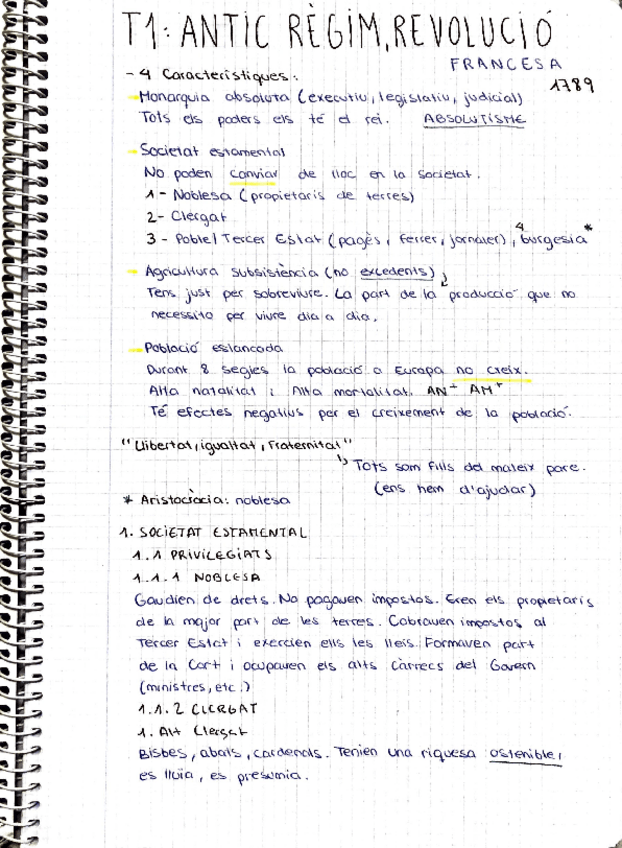 T1: ANTIC RÈGIM, REVOLUCIÓ
FRANCESA
1789
- 4 Característiques:
- Monarquia absoluta (executiu, legislatiu, judicial)
Tots els poders els té el rei. ABSOLUTISME
- Societat estamental
No poden canviar de lloc en la societat.
1- Noblesa (propietaris de terres)
2- Clergat
3- Poble/Tercer Estat (pagès, ferrer, jornaler), burgesia *
4
- Agricultura subsistència (no excedents)
Tens just per sobreviure. La part de la producció que no
necessito per viure dia a dia.
- Població estancada
Durant 8 segles la població a Europa no creix.
Alta natalitat i Alta mortalitat. AN+ AM+
Té efectes negatius per el creixement de la població.
"Llibertat, igualtat, Fraternitat"
Tots som fills del mateix pare.
(ens hem d'ajudar)
* Aristocràcia: noblesa
1. SOCIETAT ESTAMENTAL
1.1 PRIVILEGIATS
1.1.1 NOBLESA
Gaudien de drets. No pagaven impostos. Eren els propietaris
de la major part de les terres. Cobraven impostos al
Tercer Estat i exercien ells les lleis. Formaven part
de la Cort i ocupaven els alts càrrecs del Govern
(ministres, etc.)
1.1.2 CLERGAT
1. Alt Clergat
Bisbes, abats, cardenals. Tenien una riquesa ostenible,
es lluïa, es presumia.